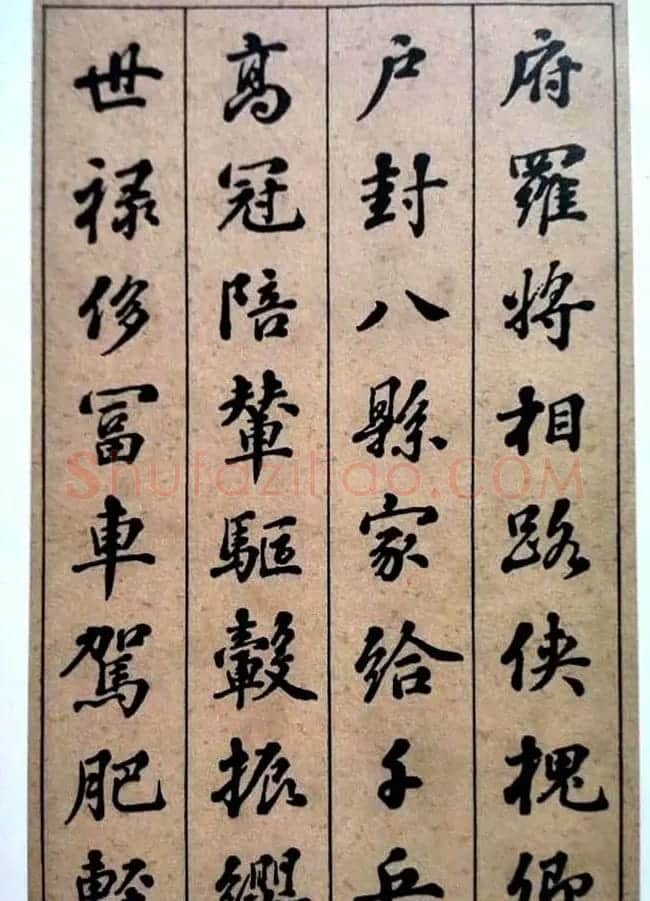 府羅將相路俠槐卿
户封八縣家給千兵
高冠陪輦驅轂振纓
世禄侈冨車駕肥輕
Shufaziliao.COM